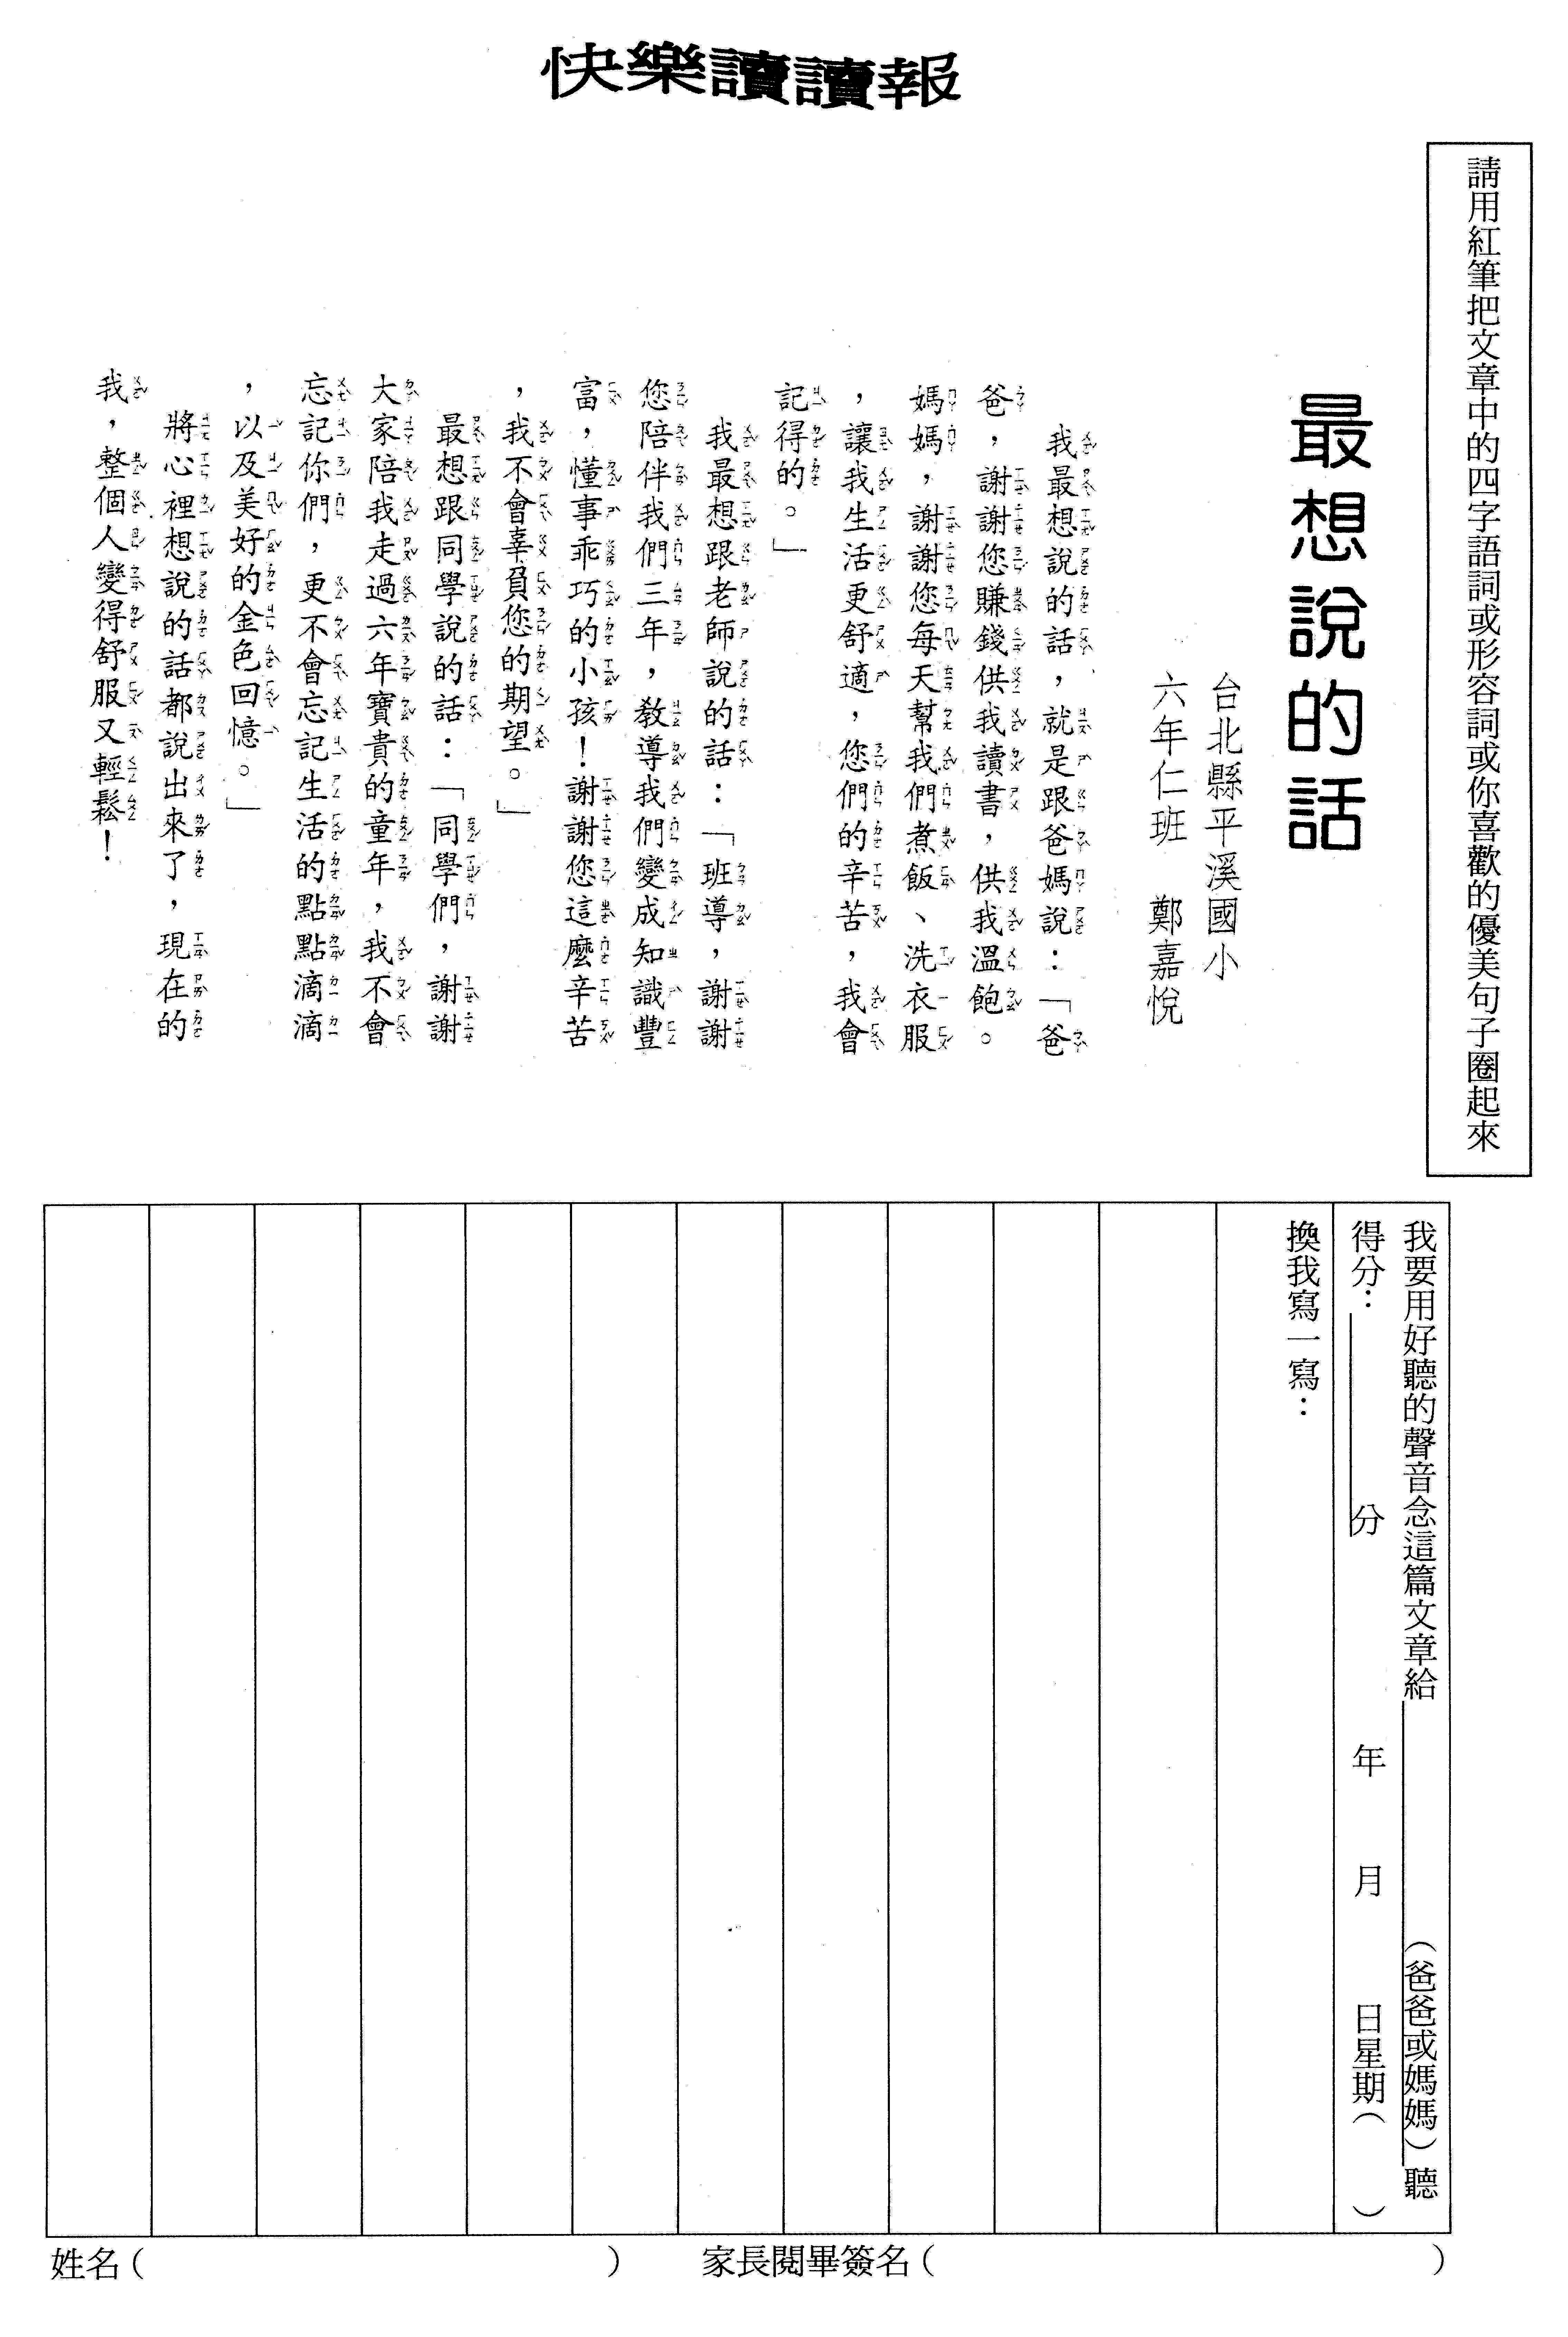 快樂讀讀報
請用紅筆把文章中的四字語詞或形容詞或你喜歡的優美句子圈起來
最想說的話
台北縣平溪國小
六年仁班　鄭嘉悅
我最想說的話，就是跟爸媽說：「爸
爸，謝謝您賺錢供我讀書，供我溫飽。
媽媽，謝謝您每天幫我們煮飯、洗衣服
，讓我生活更舒適，您們的辛苦，我會
記得的。」
我最想跟老師說的話：「班導，謝謝
您陪伴我們三年，教導我們變成知識豐
富，懂事乖巧的小孩！謝謝您這麼辛苦
，我不會辜負您的期望。」
最想跟同學說的話：「同學們，謝謝
大家陪我走過六年寶貴的童年，我不會
忘記你們，更不會忘記生活的點點滴滴
，以及美好的金色回憶。」
將心裡想說的話都說出來了，現在的
我，整個人變得舒服又輕鬆！
我要用好聽的聲音念這篇文章給＿＿＿＿（爸爸或媽媽）聽
得分：＿＿＿＿分　年　月　日星期（　）
換我寫一寫：
姓名（　）　家長閱畢簽名（　）